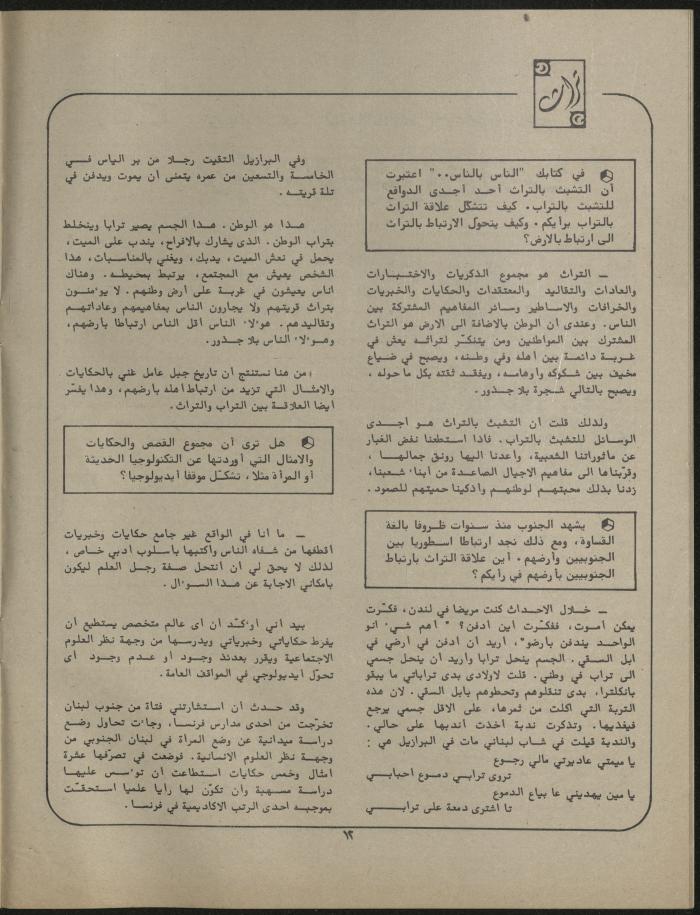 تراث
في كتابك "الناس بالناس.." اعتبرت
أن التشبث بالتراث أحد أجدى الدوافع
للتشبث بالتراب. كيف تتشكّل علاقة التراث
بالتراب برأيكم. وكيف يتحول الارتباط بالتراث
الى ارتباط بالارض؟
ــ التراث هو مجموع الذكريات والاختبارات
والعادات والتقاليد والمعتقدات والحكايات والخبريات
والخرافات والاساطير وسائر المفاهيم المشتركة بين
الناس. وعندي أن الوطن بالاضافة الى الارض هو التراث
المشترك بين المواطنين ومن يتنكّر لتراثه يعش في
غربة دائمة بين أهله وفي وطنه، ويصبح في ضياع
مخيف بين شكوكه وأوهامه، ويفقد ثقته بكل ما حوله،
ويصبح بالتالي شجرة بلا جذور.
ولذلك قلت أن التشبث بالتراث هو أجدى
الوسائل للتشبث بالتراب. فاذا استطعنا نفض الغبار
عن مأثوراتنا الشعبية، وأعدنا اليها رونق جمالها،
وقرّبناها الى مفاهيم الاجيال الصاعدة من أبناء شعبنا،
زدنا بذلك محبتهم لوطنهم وأذكينا حميتهم للصمود.
يشهد الجنوب منذ سنوات ظروفا بالغة
القساوة، ومع ذلك نجد ارتباطا اسطوريا بين
الجنوبيين وأرضهم. أين علاقة التراث بارتباط
الجنوبيين بأرضهم في رأيكم؟
ــ خلال الاحداث كنت مريضا في لندن، فكّرت
يمكن أموت، ففكّرت أين أدفن؟ "أهم شيء انو
الواحد يندفن بأرضو"، أريد أن أدفن في أرضي في
ابل السقي. الجسم ينحل ترابا وأريد أن ينحل جسمي
الى تراب في وطني. قلت لاولادي بدي تراباتي ما يبقو
بانكلترا، بدي تنقلوهم وتحطوهم بابل السقي. لان هذه
التربة التي أكلت من ثمرها، على الاقل جسمي يرجع
فيغذيها. وتذكرت ندبة أخذت أندبها على حالي.
والندبة قيلت في شاب لبناني مات في البرازيل هي:
يا ميمتي عاديرتي مالي رجوع
تروي ترابي دموع احبابي
يا مين يهديني عا بياع الدموع
تا اشتري دمعة على ترابي
وفي البرازيل التقيت رجلا من بر الياس في
الخامسة والتسعين من عمره يتمنى أن يموت ويدفن في
تلة قريته.
هذا هو الوطن. هذا الجسم يصير ترابا ويختلط
بتراب الوطن. الذي يشارك بالافراح، يندب على الميت،
يحمل في نعش الميت، يدبك، ويغني بالمناسبات، هذا
الشخص يعيش مع المجتمع، يرتبط بمحيطه. وهناك
أناس يعيشون في غربة على أرض وطنهم. لا يؤمنون
بتراث قريتهم ولا يجارون الناس بمفاهيمهم وعاداتهم
وتقاليدهم. هؤلاء الناس أقل الناس ارتباطا بأرضهم،
وهؤلاء الناس بلا جذور.
من هنا نستنتج أن تاريخ جبل عامل غني بالحكايات
والامثال التي تزيد من ارتباط أهله بأرضهم، وهذا يفسّر
أيضا العلاقة بين التراب والتراث.
هل ترى أن مجموع القصص والحكايات
والامثال التي أوردتها عن التكنولوجيا الحديثة
أو المرأة مثلا، تشكّل موقفا أيديولوجيا؟
ــ ما أنا في الواقع غير جامع حكايات وخبريات
أقطفها من شفاه الناس وأكتبها بأسلوب أدبي خاص،
لذلك لا يحق لي أن أنتحل صفة رجل العلم ليكون
بامكاني الاجابة عن هذا السؤال.
بيد أني أؤكّد أن أي عالم متخصص يستطيع أن
يفرط حكاياتي وخبرياتي ويدرسها من وجهة نظر العلوم
الاجتماعية ويقرر بعدئذ وجود أو عدم وجود أي
تحوّل أيديولوجي في المواقف العامة.
وقد حدث أن استشارتني فتاة من جنوب لبنان
تخرّجت من احدى مدارس فرنسا، وجاءت تحاول وضع
دراسة ميدانية عن وضع المرأة في لبنان الجنوبي من
وجهة نظر العلوم الانسانية. فوضعت في تصرّفها عشرة
أمثال وخمس حكايات استطاعت أن تؤسس عليها
دراسة مسهبة وأن تكوّن لها رأيا علميا استحقّت
بموجبه احدى الرتب الاكاديمية في فرنسا.
١٣